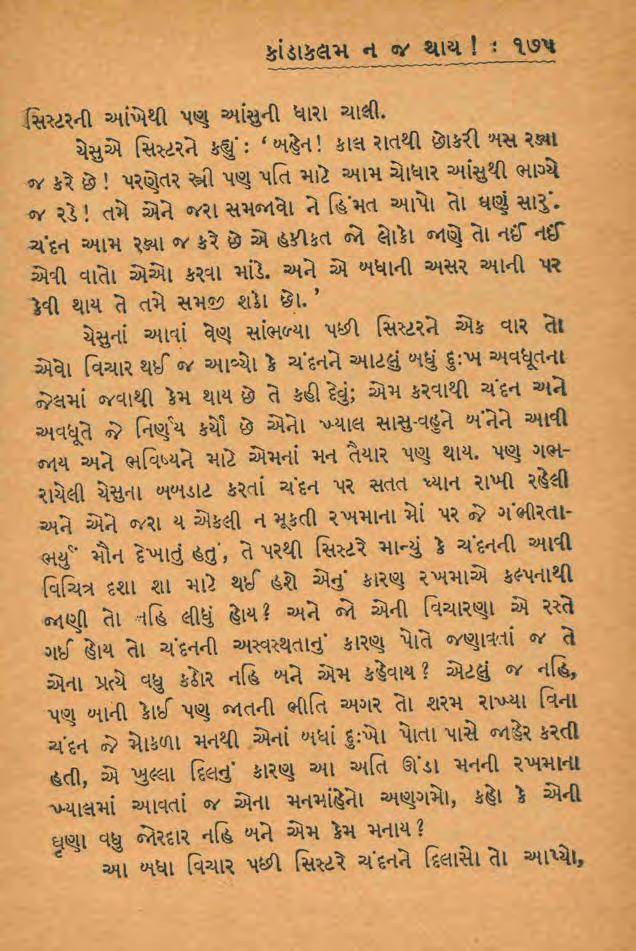 કાંડાકલમ ન જ થાય ! : ૧૭૫
સિસ્ટરની આંખેથી પણ આંસુની ધારા ચાલી.
યેસુએ સિસ્ટરને કહ્યું : ‘ બહેન! કાલ રાતથી છોકરી બસ રડ્યા
જ કરે છે! પરણેતર સ્ત્રી પણ પતિ માટે આમ ચોધાર આંસુથી ભાગ્યે
જ રડે! તમે એને જરા સમજાવો ને હિંમત આપો તો ઘણું સારું.
ચંદન આમ રડ્યા જ કરે છે એ હકીકત જો લોકો જાણે તો નઈ નઈ
એવી વાતો એઓ કરવા માંડે. અને એ બધાની અસર આની પર
કેવી થાય તે તમે સમજી શકો છો. ’
યેસુનાં આવાં વેણ સાંભળ્યા પછી સિસ્ટરને એક વાર તો
એવો વિચાર થઈ જ આવ્યો કે ચંદનને આટલું બધું દુઃખ અવધૂતના
જેલમાં જવાથી કેમ થાય છે તે કહી દેવું; એમ કરવાથી ચંદન અને
અવધૂતે જે નિર્ણય કર્યો છે એનો ખ્યાલ સાસુ-વહુને બંનેને આવી
જાય અને ભવિષ્યને માટે એમનાં મન તૈયાર પણ થાય. પણ ગભ-
રાયેલી યેસુના બબડાટ કરતાં ચંદન પર સતત ધ્યાન રાખી રહેલી
અને એને જરા ય એકલી ન મૂકતી રખમાના મોં પર જે ગંભીરતા-
ભર્યું મૌન દેખાતું હતું, તે પરથી સિસ્ટરે માન્યું કે ચંદનની આવી
વિચિત્ર દશા શા માટે થઈ હશે એનું કારણ રખમાએ કલ્પનાથી
જાણી તો નહિ લીધું હોય? અને જો એની વિચારણા એ રસ્તે
ગઈ હોય તો ચંદનની અસ્વસ્થતાનું કારણ પોતે જણાવતાં જ તે
એના પ્રત્યે વધુ કઠોર નહિ બને એમ કહેવાય? એટલું જ નહિ,
પણ બાની કોઈ પણ જાતની ભીતિ અગર તો શરમ રાખ્યા વિના
ચંદન જે મોકળા મનથી એનાં બધાં દુઃખો પોતા પાસે જાહેર કરતી
હતી, એ ખુલ્લા દિલનું કારણ આ અતિ ઊંડા મનની રખમાના
ખ્યાલમાં આવતાં જ એના મનમાંહેનો અણગમો, કહો કે એની
ઘૃણા વધુ જોરદાર નહિ બને એમ કેમ મનાય?
આ બધા વિચાર પછી સિસ્ટરે ચંદનને દિલાસો તો આપ્યો,